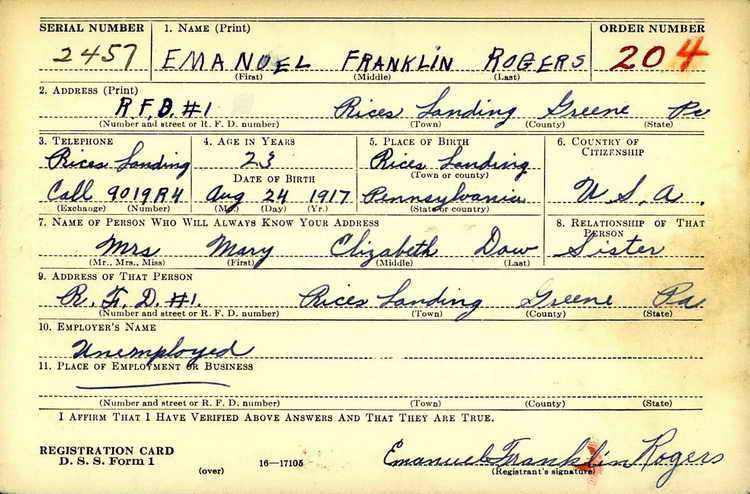 SERIAL NUMBER 1. NAME (Print) ORDER NUMBER
2457 EMANUEL FRANKLIN ROGERS 204
(First) (Middle) (Last)
2. ADDRESS (Print)
R.F.D. #1 Rices Landing Greene Pa
(Number and street or R. F. D. number) (Town) (County) (State)
3. TELEPHONE 4. AGE IN YEARS 5. PLACE OF BIRTH 6. COUNTRY OF CITIZENSHIP
Rices Landing 23 Rices Landing
DATE OF BIRTH (Town or county)
Call 9019R4 Aug 24 1917 Pennsylvania U.S.A.
(Exchange) (Number) (Mo.) (Day) (Yr.) (State or country)
7. NAME OF PERSON WHO WILL ALWAYS KNOW YOUR ADDRESS 8. RELATIONSHIP OF THAT PERSON
Mrs Mary Elizabeth Dow Sister
(Mr., Mrs., Miss) (First) (Middle) (Last)
9. ADDRESS OF THAT PERSON
R.F.D. #1. Rices Landing Greene Pa.
(Number and street or R. F. D. number) (Town) (County) (State)
10. EMPLOYER'S NAME
Unemployed
11. PLACE OF EMPLOYMENT OR BUSINESS
(Number and street or R. F. D. number) (Town) (County) (State)
I AFFIRM THAT I HAVE VERIFIED ABOVE ANSWERS AND THAT THEY ARE TRUE.
REGISTRATION CARD Emanuel Franklin Rogers
D. S. S. Form 1 (over) 16—17105 (Registrant's signature)